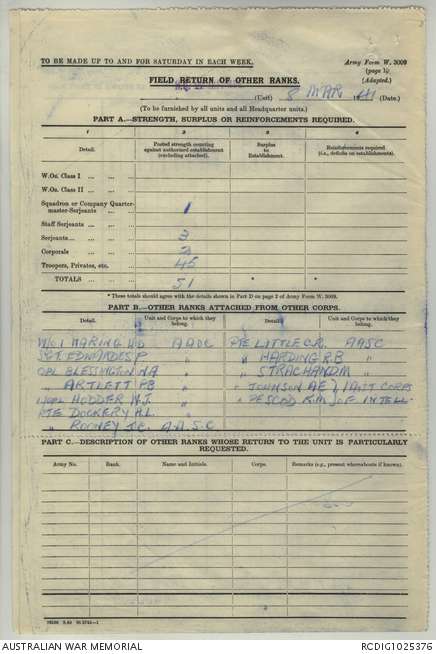 TO BE MADE UP TO AND FOR SATURDAY IN EACH WEEK.
Army Form W. 3009
(page 1)
(Adapted.)
FIELD RETURN OF OTHER RANKS.
(Unit) 8 MAR 1941 (Date.)
(To be furnished by all units and all Headquarter units.)
PART A.—STRENGTH, SURPLUS OR REINFORCEMENTS REQUIRED.
1 2 3 4
Detail. Posted strength counting against authorised establishment (excluding attached). Surplus to Establishment. Reinforcements required (i.e., deficits on establishments).
W.Os. Class I
W.Os. Class II
Squadron or Company Quarter-master-Serjeants 1
Staff Serjeants
Serjeants 3
Corporals 2
Troopers, Privates, etc. 45
TOTALS 51 * *
* These totals should agree with the details shown in Part D on page 2 of Army Form W. 3009.
PART B.—OTHER RANKS ATTACHED FROM OTHER CORPS.
Detail. Unit and Corps to which they belong. Detail. Unit and Corps to which they belong.
W/O 1 WARING W.B AAOC PTE LITTLE C.R. AASC
SGT EDWARDES P " HARDING R.B "
CPL BLESSINGTON N.A " STRACHAN D M "
" ARTLETT P.B " JOHNSON A E } ATT CORPS
L/CPL HODDER W.J. " PESCOD R.M } OF INTELL
PTE DOCKERY H.L.
" ROONEY J.C. A.A.S.C
PART C.—DESCRIPTION OF OTHER RANKS WHOSE RETURN TO THE UNIT IS PARTICULARLY REQUESTED.
Army No. Rank. Name and Initials. Corps. Remarks (e.g., present whereabouts if known).
AUSTRALIAN WAR MEMORIAL RCDIG1025376